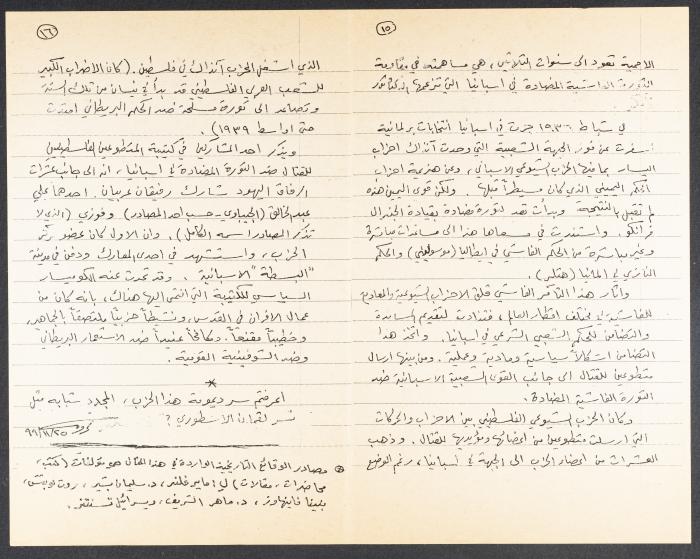 ١٥
الاهمية تعود الى سنوات الثلاثين، هي مساهمته في مقاومة
الثورة الفاشية المضادة في اسبانيا التي تزعمها الدكتاتور
في شباط ١٩٣٦ جرت في اسبانيا انتخابات برلمانية
أسفرت عن فوز الجبهة الشعبية التي وحدت آنذاك احزاب
اليسار بما فيها الحزب الشيوعي الاسباني، وعن هزيمة احزاب
الحكم اليميني الذي كان مسيطراً قبلها. ولكن قوى اليمين هذه
لم تقبل بالنتيجة وبدأت تعد لثورة مضادة بقيادة الجنرال
فرانكو. واستندت في مسعاها هذا الى مساندات مباشرة
وغير مباشرة من الحكم الفاشي في ايطاليا (موسوليني) والحكم
النازي في المانيا (هتلر).
وأثار هذا التآمر الفاشي قلق الاحزاب الشيوعية والمعادية
للفاشية في مختلف اقطار العالم، فتنادت لتقديم المساندة
والتضامن للحكم الشعبي الشرعي في اسبانيا. واتخذ هذا
التضامن اشكالاً سياسية ومادية وعملية. ومن بينها ارسال
متطوعين للقتال الى جانب القوى الشعبية الاسبانية ضد
الثورة الفاشية المضادة.
وكان الحزب الشيوعي الفلسطيني بين الاحزاب والحركات
التي ارسلت متطوعين من اعضائها ومؤيديها للقتال. وذهب
العشرات من اعضاء الحزب الى الجبهة في اسبانيا، رغم الوضع
١٦
الذي اشغل الحزب آنذاك في فلسطين. (كان الاضراب الكبير
للشعب العربي الفلسطيني قد بدأ في نيسان من تلك السنة
وتصاعد الى ثورة مسلحة ضد الحكم البريطاني امتدت
حتى اواسط ١٩٣٩).
ويذكر احد المشاركين في كتيبة المتطوعين الفلسطينيين
للقتال ضد الثورة المضادة في اسبانيا، انه الى جانب عشرات
الرفاق اليهود شارك رفيقان عربيان. احدهما علي
عبد الخالق (الجيباوي - حسب احد المصادر) وفوزي (الذي لا
تذكر المصادر اسمه الكامل). وان الاول كان عضو
الحزب، واستشهد في احدى المعارك ودفن في مدينة
"البسطة" الاسبانية. وقد تحدث عنه الكوميسار
السياسي للكتيبة التي انتمى اليها هناك، بانه كان من
عمال الافران في القدس، ونشيطاً حزبياً ملتصقاً بالجماهير
وخطيباً مقنعاً. ومكافحاً عنيداً ضد الاستعمار البريطاني
وضد الشوفينية القومية.
*
اعرفتم سر ديمومة هذا الحزب، المجدد شبابه مثل
نسر لقمان الاسطوري؟
٩٩/١١/٢٥
مصادر الوقائع التاريخية الواردة في هذا المقال هي مؤلفات (كتب،
محاضرات، مقالات) ل: ماير فلنر، د. سليمان بشير، روت لوبيتش،
بنينا فاينهاوز، د. ماهر الشريف، ويسرائيل